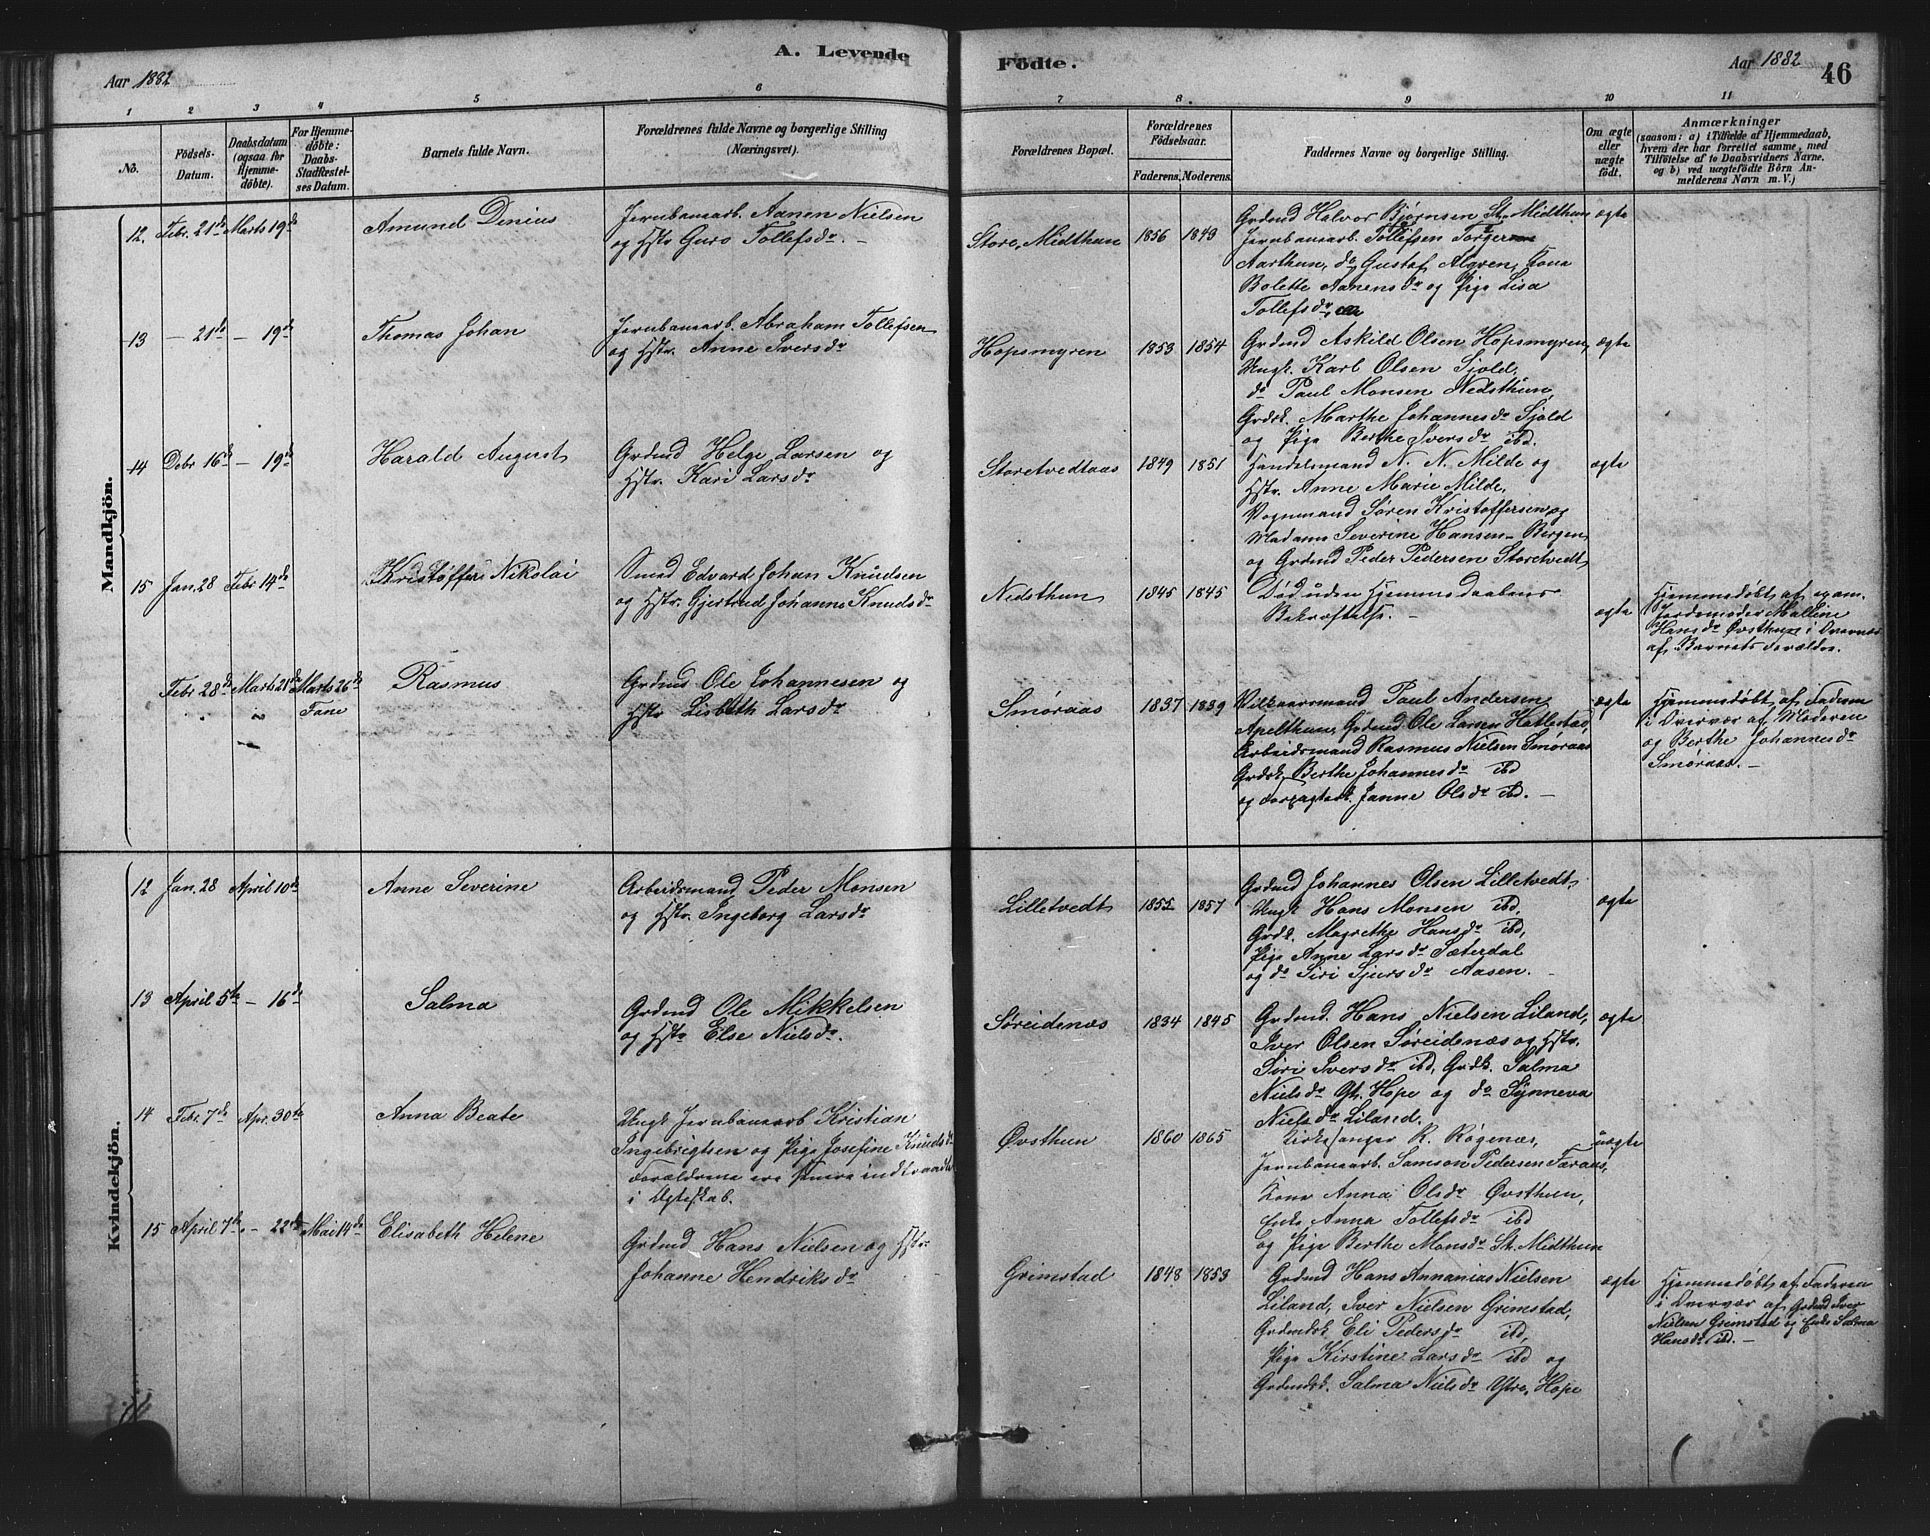 A. Levende Födte.
Aar 1882
Aar 1882
46
1 2 3 4 5 6 7 8. 9 10 11
No.
Födsels-
Datum.
Daabsdatum
(ogsaa før
Hjemme-
döbte).
For Hjemme-
döbte:
Daabs-
Stadfæstel-
ses Datum.
Barnets fulde Navn.
Forældrenes fulde Navne og borgerlige Stilling
(Næringsvei).
Forældrenes Bopæl.
Forældrenes
Födselsaar.
Faderens. Moderens.
Faddernes Navne og borgerlige Stilling.
Om ægte
eller
uægte
födt.
Anmærkninger
(saasom: a) i Tilfælde af Hjemmedaab,
hvem der har forrettet samme, med
Tilföielse af to Daabsvidners Navne,
og b) ved uægtefödte Börn An-
melderens Navn m. V.)
Mandkjön.
12. Febr. 21de Marts 19de
Amund Denius
Jernbanearb. Aanen Nielsen
og Hstr. Guro Tollefsdr. –
Store Midthun
1856 1849
Grdmd Halvor Bjørnsen St. Midthun
Jernbanearb. Tollefsen Torger
Aarthun, do Gustaf Algren, Kone
Bolette Aanensdr og Pige Lisa
Tollefsdr
ægte
13 – 21de – 19de
Thomas Johan
Jernbanearb. Abraham Tollefsen
og Hstr. Anne Iversdr
Hopsmyren
1853 1854
Grdmd Askild Olsen Hopsmyren,
Ungk. Karl Olsen Sjold,
do Paul Monsen Nedsthun,
Grdsk. Marthe Johannesdr Sjold
og Pige Berthe Iversdr ibd.
ægte
14 Debr 16de – 19de
Harald August
Grdmd Helge Larsen og
Hstr. Kari Larsdr
Storetvedtaas
1849 1851
Handelsmand N. N. Milde og
Hstr. Anne Marie Milde,
Vognmand Søren Kristoffersen og
Madame Severine Hansen – Bergen,
og Grdmd Peder Pedersen Storetvedt
ægte
15 Jan. 28 Febr 14de
Kristoffer Nikolai
Smed Edvard Johan Knudsen
og Hstr. Gjertrud Johanne Knudsdr
Nedsthun
1845 1845
Død uden Hjemmedaabens
Bekræftelse. –
ægte
Hjemmedøbt af exam.
Jordemoder Malline
Hansdr Øvsthun i Overvær
af Barnets Forældre.
Febr 28de Marts 21de Marts 26de
Fane
Rasmus
Grdmd Ole Johannesen og
Hstr Lisbeth Larsdr
Smøraas
1837 1839
Vilkaarsmand Paul Andersen
Apelthun, Grdmd Ole Larsen Hatlestad,
Arbeidsmand Rasmus Nielsen Smøraas
Grdsk. Berthe Johannesdr ibd
og Forpagtersk. Janne Olsdr ibd. –
ægte
Hjemmedøbt af Faderen
i Overvær af Moderen
og Berthe Johannesdr
Smøraas. –
Kvindekjön.
12 Jan. 28 April 10de
Anne Severine
Arbeidsmand Peder Monsen
og Hstr. Ingeborg Larsdr
Lilletvedt
1855 1857
Grdmd Johannes Olsen Lilletvedt,
Ungk Hans Monsen ibd,
Grdk. Magrethe Hansdr ibd,
Pige Anne Larsdr Sæterdal
og do Siri Sjursdr Aasen. –
ægte
13 April 5te – 16de
Salma
Grdmd Ole Mikkelsen
og Hstr Else Nielsdr.
Søreidenæs
1834 1845
Grdmd. Hans Nielsen Liland,
Iver Olsen Søreidenæs og Hstr.
Siri Iversdr ibd, Grdk. Salma
Nielsdr Yt. Hope og do Synneva
Nielsdr Liland.
ægte
14 Febr. 7de Apr. 30te
Anna Beate
Ungk Jernbanearb Kristian
Ingebrigtsen og Pige Josefine Knudsdr
Forældrene ere senere indtraadte
i Ægteskab.
Øvsthun
1860 1865
Kirkesanger R. Røgenæs,
Jernbanearb. Samson Pedersen Faraas,
Kone Anna Olsdr Øvsthun,
Enke Anna Tollefsdr ibd
og Pige Berthe Monsdr St. Midthun
uægte
15 April 7de – 22de Mai 14de
Elisabeth Helene
Grdmd Hans Nielsen og Hstr.
Johanne Hendriksdr
Grimstad
1848 1853
Grdmd Hans Annanias Nielsen
Liland, Iver Nielsen Grimstad,
Grdmdsk. Eli Pedersdr ibd,
Pige Kirstine Larsdr ibd og
Grdmdsk. Salma Nielsdr Ytre Hope
ægte
Hjemmedøbt af Faderen
i Overvær af Grdmd Iver
Nielsen Grimstad og Enke Salma
Hansdr ibd. –